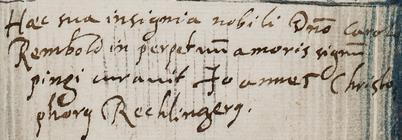 Hæc sua insignia nobili Dno Carolo
Rembold in perpetuu amoris signu
pingi curavit Joannes Christo
phorg Rechlingerg.